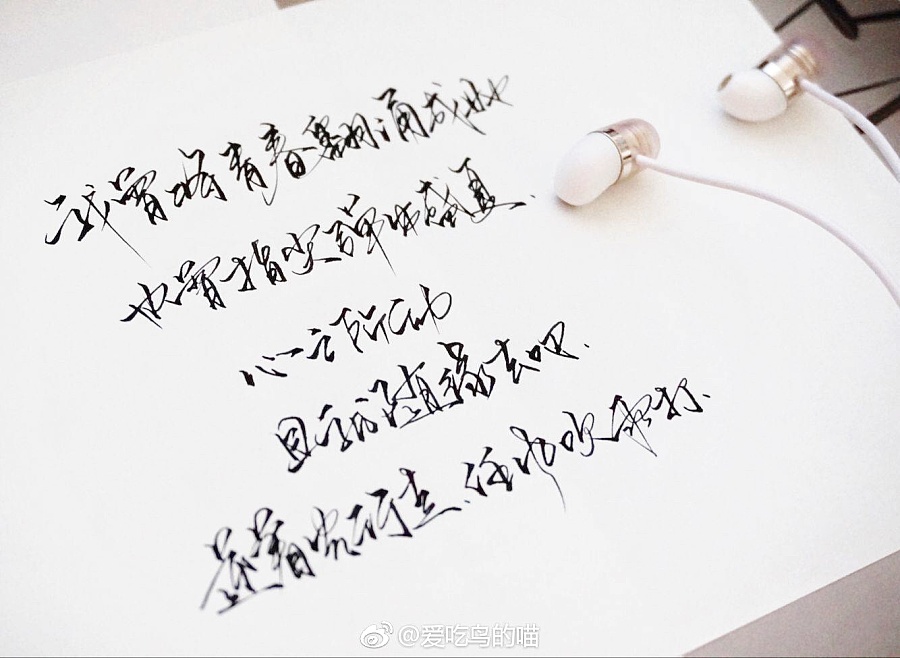 我曾将青春翻涌成她
也曾指尖弹出盛夏.
心之所动
且就随缘去吧.
逆着光行走、任风吹雨打.
@爱吃鸟的喵